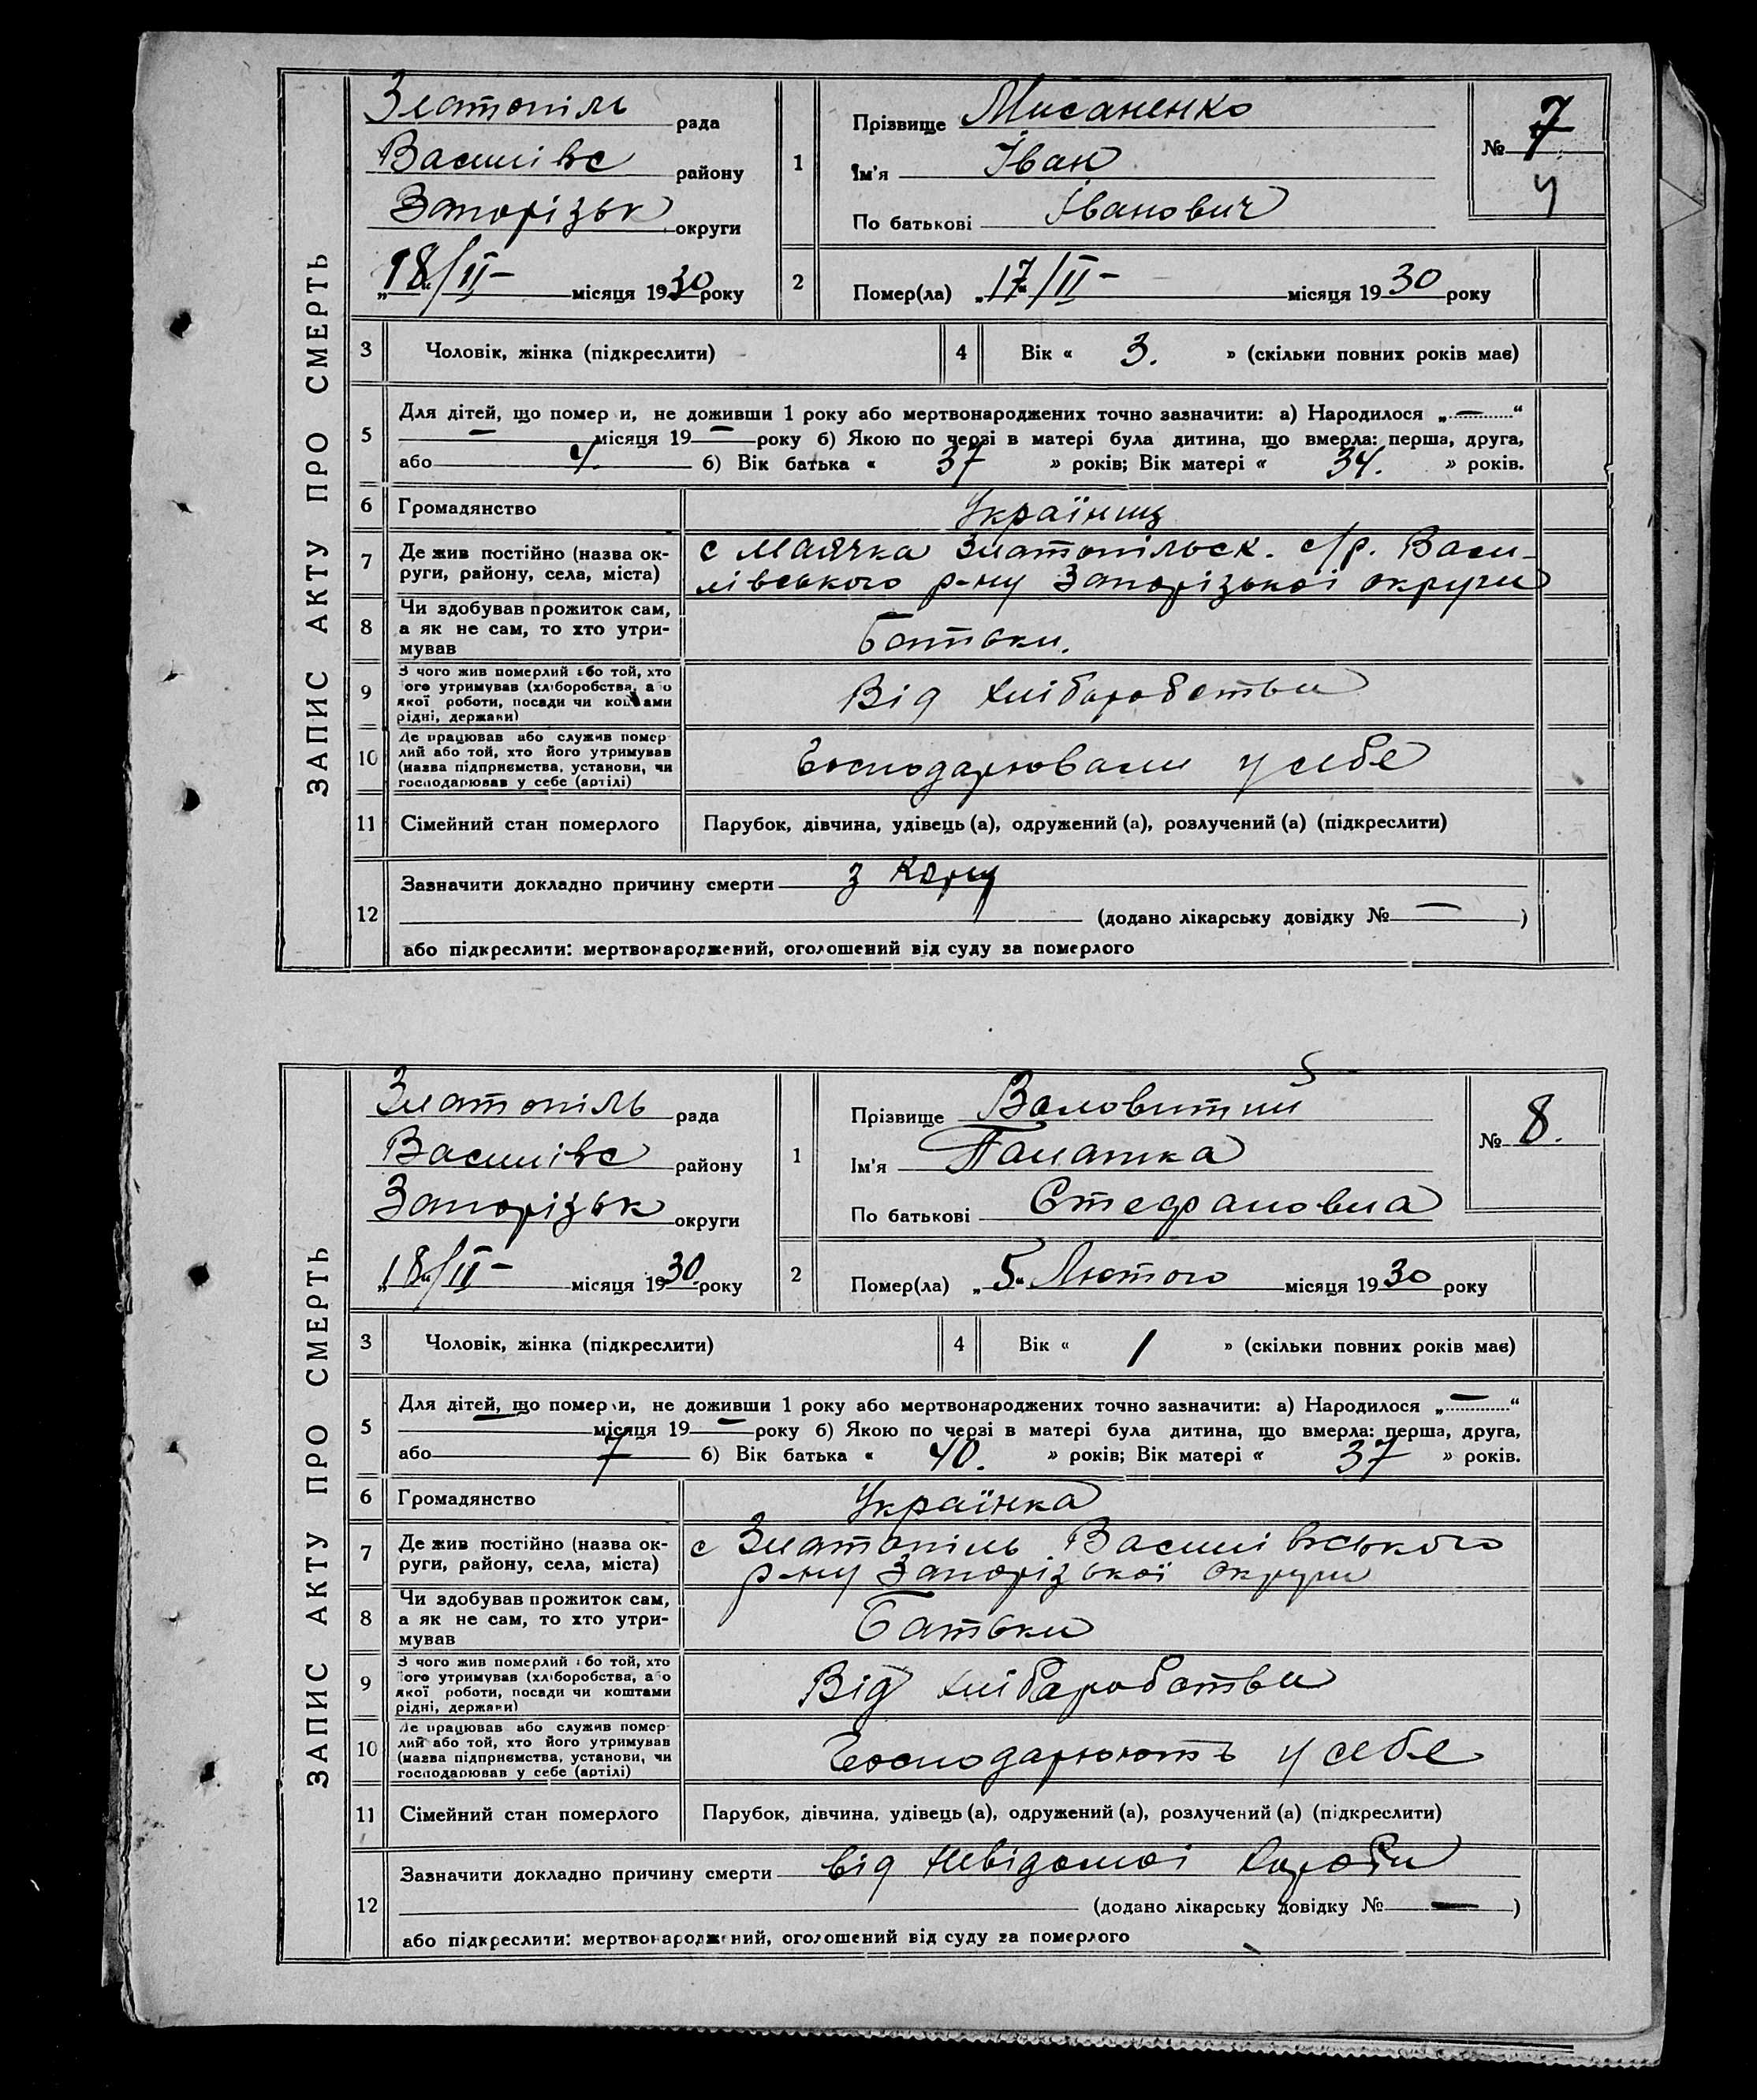 ЗАПИС АКТУ ПРО СМЕРТЬ
Златопіль рада
Василівс району
Запорізьк округи
„18“/II – місяця 1930 року
1 Прізвище Мисаненко
Ім'я Іван
По батькові Іванович
№ 7
ч
2 Помер(ла) „17“/II – місяця 1930 року
3 Чоловік, жінка (підкреслити) 4 Вік « 3. » (скільки повних років має)
5 Для дітей, що померли, не доживши 1 року або мертвонароджених точно зазначити: а) Народилося „—“
— місяця 19— року б) Якою по черзі в матері була дитина, що вмерла: перша, друга,
або 4. б) Вік батька « 37 » років; Вік матері « 34. » років.
6 Громадянство Українц
7 Де жив постійно (назва ок-
руги, району, села, міста)
с Маячка Златопільск. с/р. Васи-
лівського р-ну Запорізької округи
8 Чи здобував прожиток сам,
а як не сам, то хто утри-
мував
Батьки.
9 З чого жив померлий або той, хто
його утримував (хліборобства, або
якої роботи, посади чи коштами
рідні, держави)
Від хліборобства
10 Де працював або служив помер-
лий або той, хто його утримував
(назва підприємства, установи, чи
господарював у себе (артілі)
Господарювали у себе
11 Сімейний стан померлого Парубок, дівчина, удівець (а), одружений (а), розлучений (а) (підкреслити)
12 Зазначити докладно причину смерти з кору
(додано лікарську довідку № — )
або підкреслити: мертвонароджений, оголошений від суду за померлого
ЗАПИС АКТУ ПРО СМЕРТЬ
Златопіль рада
Василівс району
Запорізьк округи
„18“/II – місяця 1930 року
1 Прізвище
Ім'я Палашка
По батькові Стефановна
№ 8.
2 Помер(ла) „5“ Лютого місяця 1930 року
3 Чоловік, жінка (підкреслити) 4 Вік « 1 » (скільки повних років має)
5 Для дітей, що померли, не доживши 1 року або мертвонароджених точно зазначити: а) Народилося „—“
— місяця 19— року б) Якою по черзі в матері була дитина, що вмерла: перша, друга,
або 7 б) Вік батька « 40. » років; Вік матері « 37 » років.
6 Громадянство Українка
7 Де жив постійно (назва ок-
руги, району, села, міста)
с Златопіль Василівського
р-ну Запорізької округи
8 Чи здобував прожиток сам,
а як не сам, то хто утри-
мував
Батьки
9 З чого жив померлий або той, хто
його утримував (хліборобства, або
якої роботи, посади чи коштами
рідні, держави)
Від хліборобства
10 Де працював або служив помер-
лий або той, хто його утримував
(назва підприємства, установи, чи
господарював у себе (артілі)
Господарюють у себе
11 Сімейний стан померлого Парубок, дівчина, удівець (а), одружений (а), розлучений (а) (підкреслити)
12 Зазначити докладно причину смерти від невідомої хороби
(додано лікарську довідку № — )
або підкреслити: мертвонароджений, оголошений від суду за померлого